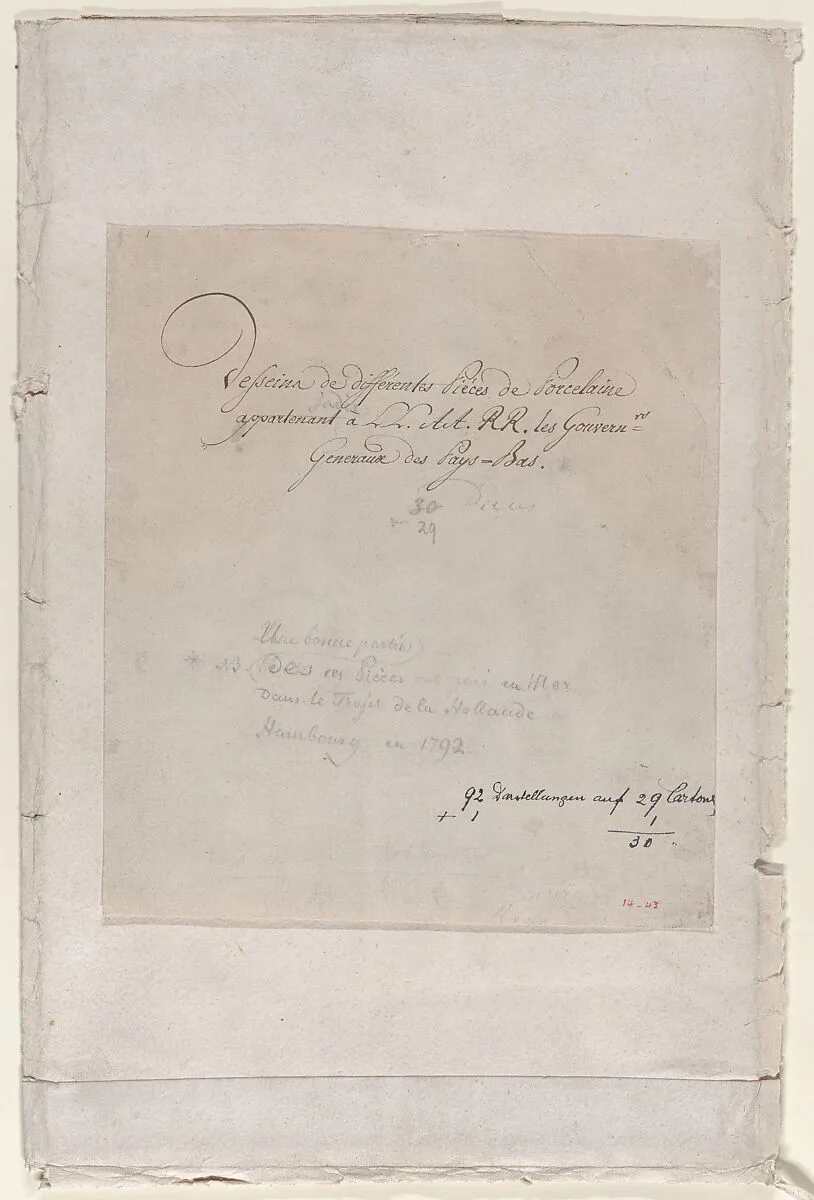 Desseins de différentes Piéces de Porcelaine
appartenant à LL. AA. RR. les Gouvern=rs
Generaux des Pays=Bas.
30
29
Une bonne partie
NB des ces Pièces en Mer
Dans le Trajet de la Hollande
Hambourg en 1792
92 Darstellungen auf 29 Cartons
+ 1 1
30
14-43